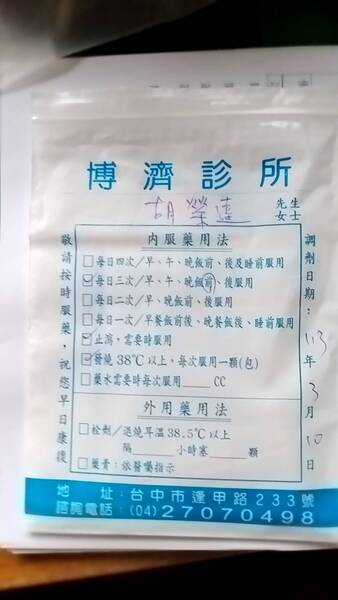 博濟診所
胡榮遠 先生
女士
內服藥用法
□每日四次/早、午、晚飯前、後及睡前服用
☑每日三次/早、午、晚飯前、後服用
□每日二次/早、晚飯前、後服用
□每日一次/早餐飯前後、晚餐飯後、睡前服用
☑止瀉,需要時服用
☑發燒38℃以上,每次服用一顆(包)
□藥水需要時每次服用____CC
外用藥用法
□栓劑/退燒耳溫38.5℃以上
隔____小時塞____顆
□藥膏:依醫囑指示
敬請按時服藥,祝您早日康復
調劑日期:113年3月10日
地 址:台中市逢甲路233號
諮詢電話:(04)27070498